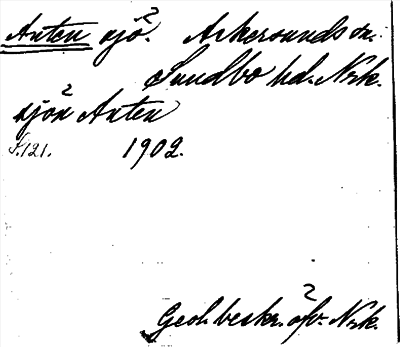 Anten sjö. Askersunds sn.
Sundbo hd. Nrk.
sjön Anten
S. 121. 1902.
Geol. beskr. öfv. Nrk.